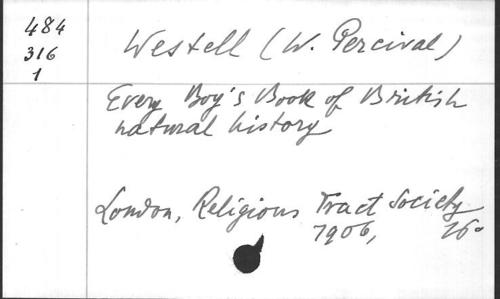 484
316
1
Westell (W. Percival)
Every Boy's Book of British
natural history
London, Religious Tract Society
1906, 16°